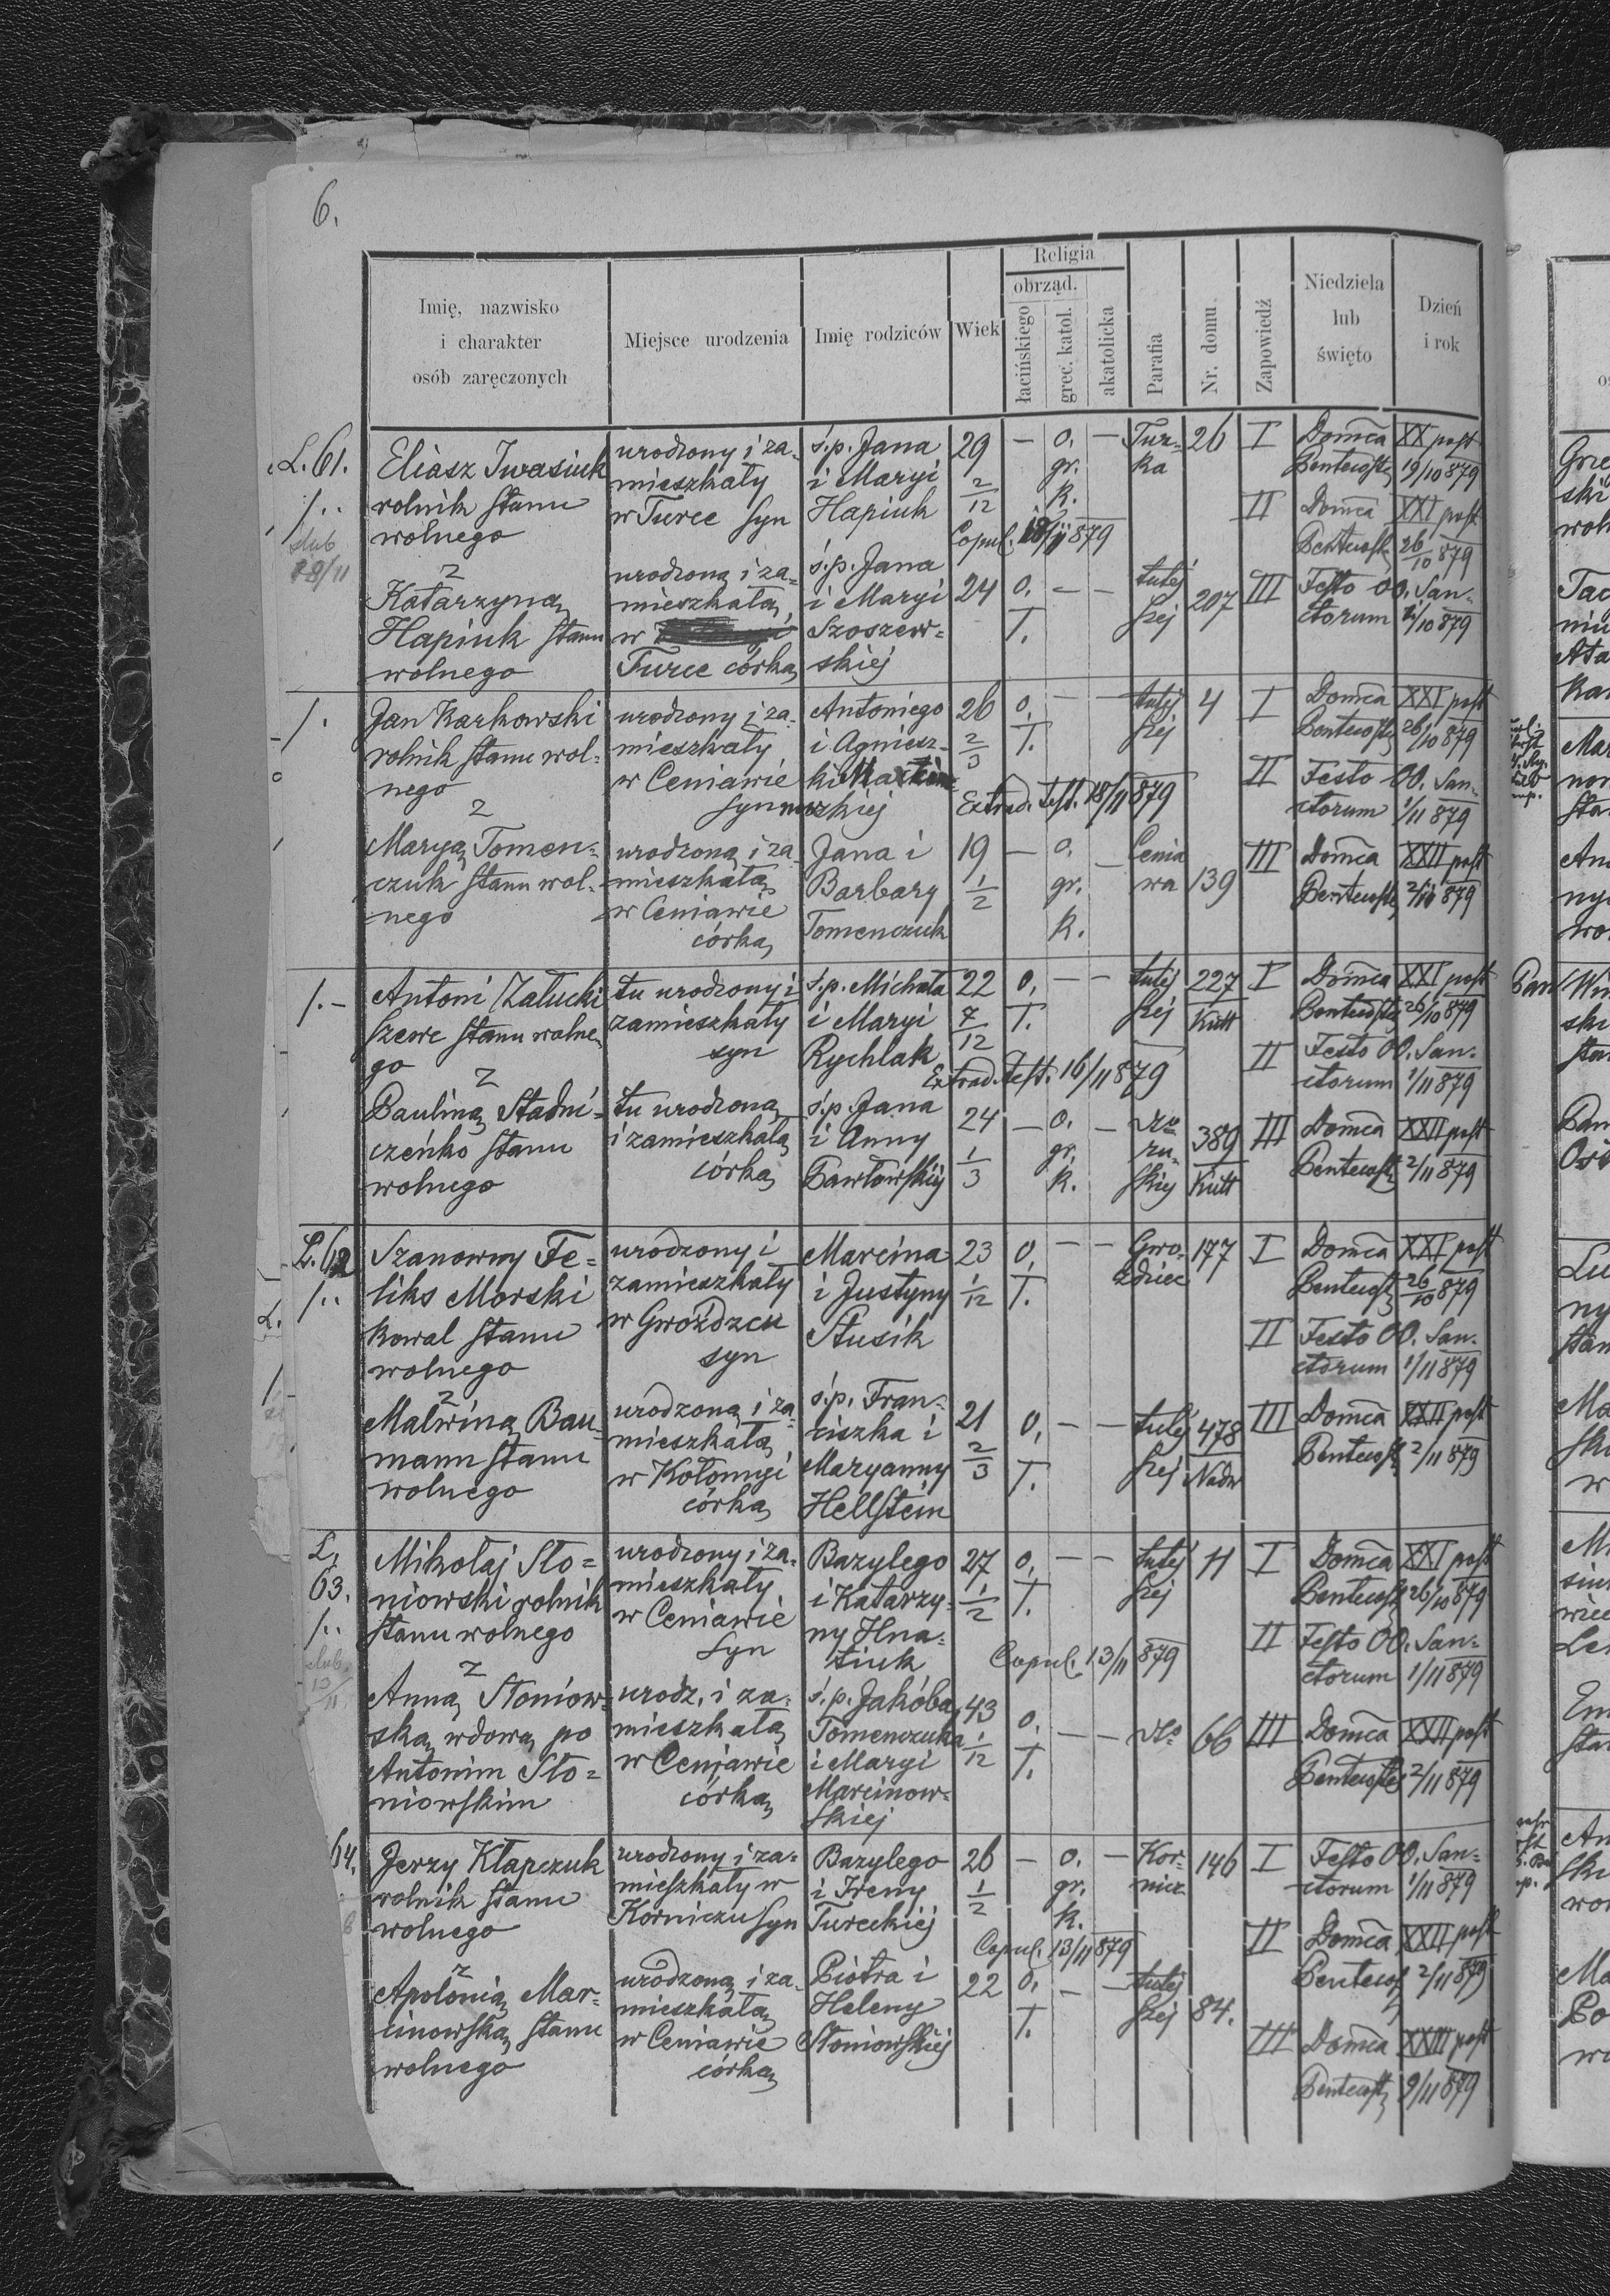 6.
Imię, nazwisko
i charakter
osób zaręczonych
Miejsce urodzenia
Imię rodziców
Wiek
Religia
obrząd.
łacińskiego
grec. katol.
akatolicka
Parafia
Nr. domu
Zapowiedź
Niedziela
lub
święto
Dzień
i rok
L. 61.
ślub
18/11
Eliasz Iwasiuk
rolnik stanu
wolnego
urodzony i za-
mieszkały
w Turce syn
ś.p. Jana
i Maryi
Hapiuk
29
2/12
— o. —
gr.
k.
Tur-
ka
26
I Domca XX post
Pentecost 19/10 879
II Domca XXI post
Pentecost 26/10 879
Copul. 18/11 879
z
Katarzyną
Hapiuk stanu
wolnego
urodzoną i za-
mieszkałą
w
Turce córką
ś.p. Jana
i Maryi
Szoszew-
skiej
24
o. — —
Ł.
tutej
szej
207
III Festo OO. San-
ctorum /10 879
Jan Karkowski
rolnik stanu wol-
nego
urodzony i za-
mieszkały
w Ceniawie
syn
Antoniego
i Agniesz-
ki
26
2/3
o. — —
Ł.
tutej
szej
4
I Domca XXI post
Pentecost 26/10 879
II Festo OO. San-
ctorum 1/11 879
Extrad. test. 18/11 879
z
Maryą Tomen-
czuk stanu wol-
nego
urodzoną i za-
mieszkałą
w Ceniawie
córką
Jana i
Barbary
Tomenczuk
19
1/2
— o. —
gr.
k.
Cenia
wa
139
III Domca XXII post
Pentecost 2/11 879
Antoni Załucki
szewc stanu wolne-
go
tu urodzony i
zamieszkały
syn
ś.p. Michała
i Maryi
Rychlak
22
7/12
o. — —
Ł.
tutej
szej
227
Kutt
I Domca XXI post
Pentecost 26/10 879
II Festo OO. San-
ctorum 1/11 879
Extrad. test. 16/11 879
z
Pauliną Stadni-
czeńko stanu
wolnego
tu urodzoną
i zamieszkałą
córką
ś.p. Jana
i Anny
Pawłowskiej
24
1/3
— o. —
gr.
k.
ru-
skiej
389
Kutt
III Domca XXII post
Pentecost 2/11 879
L. 62
Szanowny Fe-
liks Morski
kowal stanu
wolnego
urodzony i
zamieszkały
w Gwoźdzcu
syn
Marcina
i Justyny
Stusik
23
1/12
o. — —
Ł.
Gwo-
ździec
177
I Domca XXI post
Pentecost 26/10 879
II Festo OO. San-
ctorum 1/11 879
z
Malwiną Bau-
mann stanu
wolnego
urodzoną i za-
mieszkałą
w Kołomyi
córką
ś.p. Fran-
ciszka i
Maryanny
Hellstein
21
2/3
o. — —
Ł.
tutej
szej
478
Nadw
III Domca XXII post
Pentecost 2/11 879
L.
63.
ślub
13/11
Mikołaj Sło-
niowski rolnik
stanu wolnego
urodzony i za-
mieszkały
w Ceniawie
syn
Bazylego
i Katarzy-
ny Hna-
tiuk
27
1/2
o. — —
Ł.
tutej
szej
11
I Domca XXI post
Pentecost 26/10 879
II Festo OO. San-
ctorum 1/11 879
Copul. 13/11 879
z
Anną Słoniow-
ską wdową po
Antonim Sło-
niowskim
urodz. i za-
mieszkałą
w Ceniawie
córką
ś.p. Jakóba
Tomenczuka
i Maryi
Marcinow-
skiej
43
1/12
o. — —
Ł.
66
III Domca XXII post
Pentecostes 2/11 879
64.
Jerzy Kłapczuk
rolnik stanu
wolnego
urodzony i za-
mieszkały w
Korniczu syn
Bazylego
i Ireny
Tureckiej
26
1/2
— o. —
gr.
k.
Kor-
nicz
146
I Festo OO. San-
ctorum 1/11 879
II Domca XXII post
Pentecost 2/11 879
Copul. 13/11 879
z
Apolonią Mar-
cinowską stanu
wolnego
urodzoną i za-
mieszkałą
w Ceniawie
córką
Piotra i
Heleny
Słoniowskiej
22
o. — —
Ł.
tutej
szej
84.
III Domca XXIII post
Pentecost 9/11 879